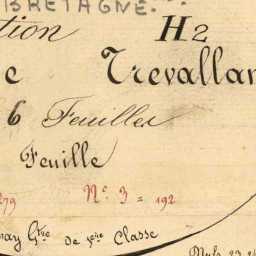 BRETAGNE.
tion H2
e Trevallan
6 Feuilles
Feuille
279 N.o 3 = 192
ray G.tre de 1.ère Classe